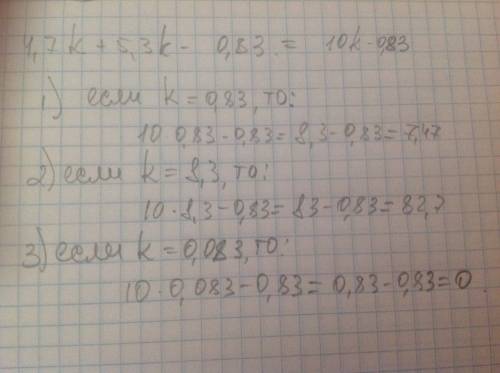 4,7k + 5,3k - 0,83 = 10k - 0,83
1) если k = 0,83, то:
10 · 0,83 - 0,83 = 8,3 - 0,83 = 7,47
2) если k = 8,3, то:
10 · 8,3 - 0,83 = 83 - 0,83 = 82,7
3) если k = 0,083, то:
10 · 0,083 - 0,83 = 0,83 - 0,83 = 0